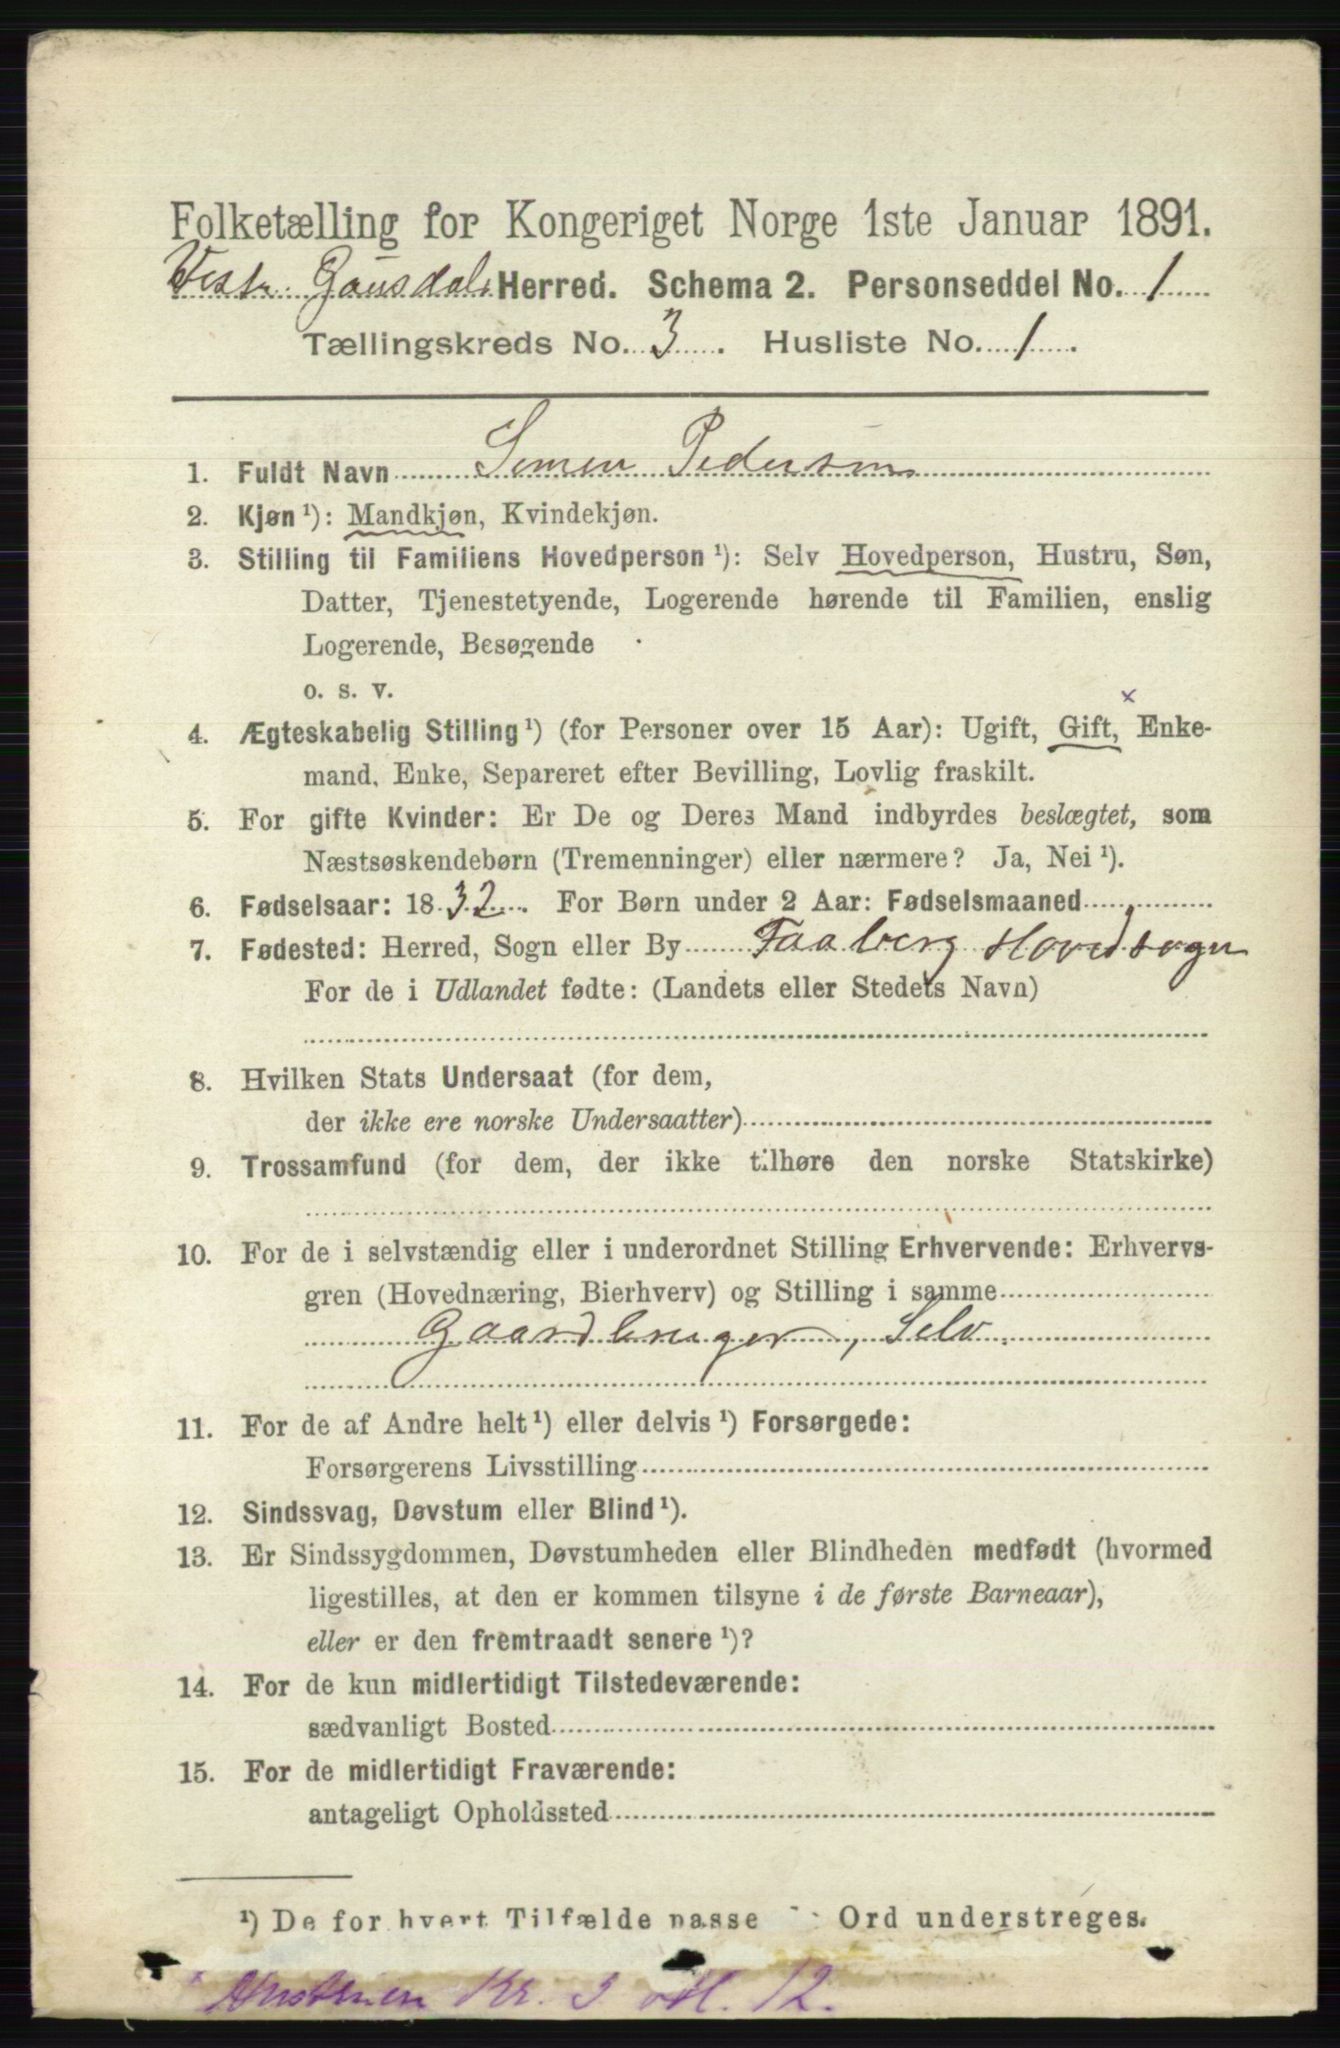 Folketælling for Kongeriget Norge 1ste Januar 1891.
Vestr. Gausdal Herred. Schema 2. Personseddel No. 1
Tællingskreds No. 3. Husliste No. 1.
1. Fuldt Navn Simen Pedersen
2. Kjøn ¹): Mandkjøn, Kvindekjøn.
3. Stilling til Familiens Hovedperson ¹): Selv Hovedperson, Hustru, Søn,
Datter, Tjenestetyende, Logerende hørende til Familien, enslig
Logerende, Besøgende
o. s. v.
x
4. Ægteskabelig Stilling ¹) (for Personer over 15 Aar): Ugift, Gift, Enke-
mand, Enke, Separeret efter Bevilling, Lovlig fraskilt.
5. For gifte Kvinder: Er De og Deres Mand indbyrdes beslægtet, som
Næstsøskendebørn (Tremenninger) eller nærmere? Ja, Nei ¹).
6. Fødselsaar: 1832. For Børn under 2 Aar: Fødselsmaaned
7. Fødested: Herred, Sogn eller By Faaberg Hovedsogn
For de i Udlandet fødte: (Landets eller Stedets Navn)
8. Hvilken Stats Undersaat (for dem,
der ikke ere norske Undersaatter)
9. Trossamfund (for dem, der ikke tilhøre den norske Statskirke)
10. For de i selvstændig eller i underordnet Stilling Erhvervende: Erhvervs-
gren (Hovednæring, Bierhverv) og Stilling i samme
Gaardbruger, Selv.
11. For de af Andre helt ¹) eller delvis ¹) Forsørgede:
Forsørgerens Livsstilling
12. Sindssvag, Døvstum eller Blind ¹).
13. Er Sindssygdommen, Døvstumheden eller Blindheden medfødt (hvormed
ligestilles, at den er kommen tilsyne i de første Barneaar),
eller er den fremtraadt senere ¹)?
14. For de kun midlertidigt Tilstedeværende:
sædvanligt Bosted
15. For de midlertidigt Fraværende:
antageligt Opholdssted
¹) De for hvert Tilfælde passe Ord understreges.
Kr. 3 Hl. 12.